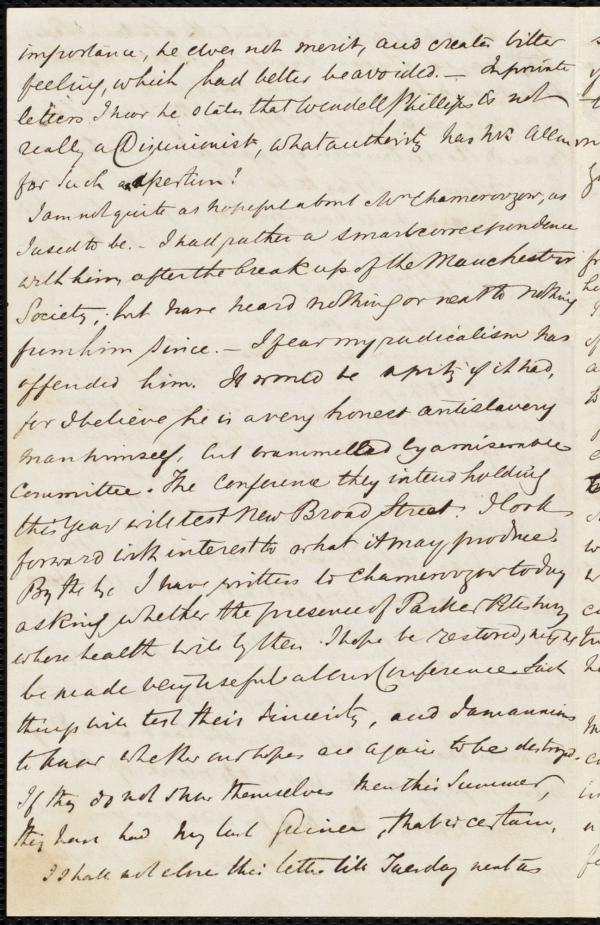 importance, he does not merit, and creates bitter
feeling, which had better be avoided. — In private
letters I hear he states that Wendell Phillips is not
really a Disunionist, what authority has Mr Allen
for such assertion?
I am not quite as hopeful about Mr Chamerovzow, as
I used to be. — I had rather a smart correspondence
with him, after the break up of the Manchester
Society, but have heard nothing or next to nothing
from him since. — I fear my radicalism has
offended him. It would be a pity if it had,
for I believe he is a very honest antislavery
man himself, but trammelled by a miserable
Committee. The Conference they intend holding
this year will test New Broad Street. I look
forward with interest to what it may produce.
By the by I have written to Chamerovzow today
asking whether the presence of Parker Pillsbury
whose health will by then I hope be restored, might
be made very useful at our Conference. Such
things will test their sincerity, and I am anxious
to know whether our hopes are again to be destroyed.
If they do not show themselves men this Summer,
they have had my last Guinea, that is certain.
I shall not close this letter till Tuesday next as